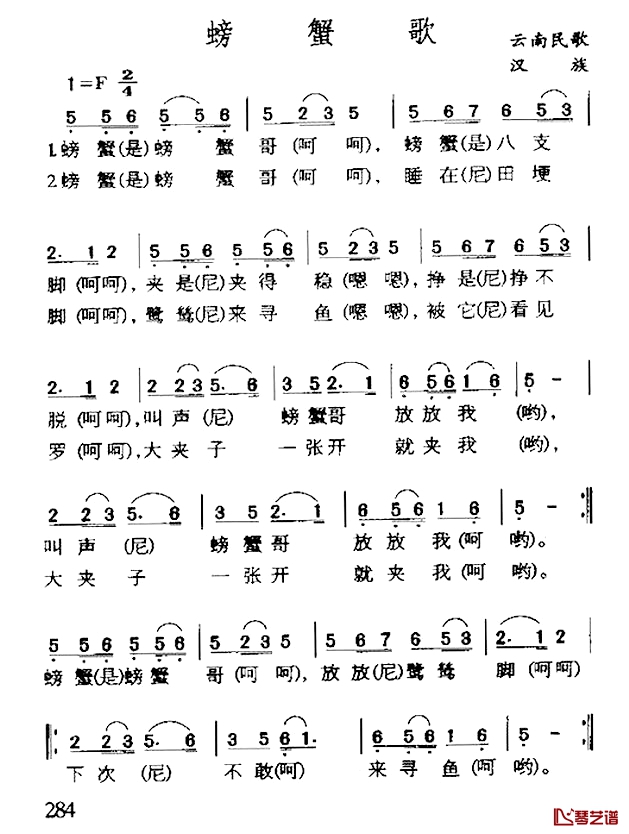 螃蟹歌
云南民歌
汉族
1=F 2/4
5 5 6 5 5 6 | 5 2 3 5 | 5 6 7 6 5 3 |
1.螃蟹(是)螃 蟹 哥(呵 呵), 螃蟹(是)八支
2.螃蟹(是)螃 蟹 哥(呵 呵), 睡在(尼)田埂
2. 1 2 | 5 5 6 5 5 6 | 5 2 3 5 | 5 6 7 6 5 3 |
脚(呵呵), 夹是(尼)夹得 稳(嗯嗯), 挣是(尼)挣不
脚(呵呵), 鹭鸶(尼)来寻 鱼(嗯嗯), 被它(尼)看见
2. 1 2 | 2 2 3 5. 6 | 3 5 2. 1 | 6 5 6 1 6 | 5 - |
脱(呵呵), 叫声(尼) 螃蟹哥 放放我 (哟),
罗(呵呵), 大夹子 一张开 就夹我 (哟),
2 2 3 5. 6 | 3 5 2. 1 | 6 5 6 1 6 | 5 - :|
叫声(尼) 螃蟹哥 放放我(呵 哟)。
大夹子 一张开 就夹我(呵 哟)。
5 5 6 5 5 6 | 5 2 3 5 | 5 6 7 6 5 3 | 2. 1 2 |
螃蟹(是)螃蟹 哥(呵 呵), 放放(尼)鹭鸶 脚(呵呵)
|: 2 2 3 5. 6 | 3 5 6 1. | 5 5 6 1 6 | 5 - :|
下次(尼) 不敢(呵) 来寻鱼(呵 哟)。
284
琴艺谱